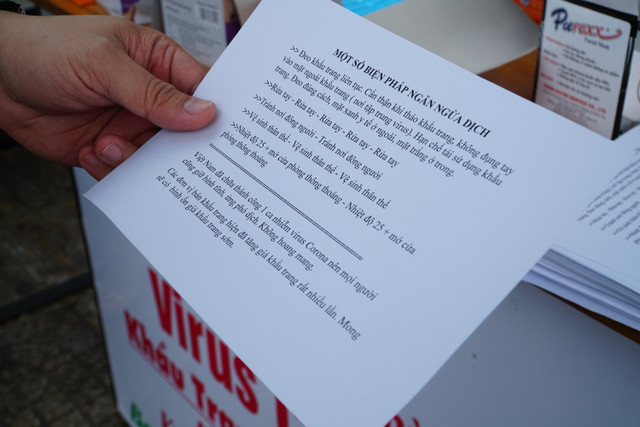 MỘT SỐ BIỆN PHÁP NGĂN NGỪA DỊCH
>> Đeo khẩu trang liên tục. Cẩn thận khi tháo khẩu trang, không đụng tay
vào mặt ngoài khẩu trang ( nơi tập trung virus). Hạn chế tái sử dụng khẩu
trang. Đeo đúng cách, mặt xanh y tế ở ngoài, mặt trắng ở trong.
>>Rửa tay - Rửa tay - Rửa tay - Rửa tay - Rửa tay
>>Tránh nơi đông người - Tránh nơi đông người
>>Vệ sinh thân thể - Vệ sinh thân thể - Vệ sinh thân thể
>>Nhiệt độ 25 + mở cửa phòng thông thoáng - Nhiệt độ 25 + mở cửa
phòng thông thoáng
Việt Nam đã chữa thành công 1 ca nhiễm virus Corona nên mọi người
cũng giữ bình tĩnh, ứng phó dịch. Không hoang mang.
Các đơn vị bán khẩu trang hiện đã tăng giá khẩu trang rất nhiều lần. Mong
sẽ có bình ổn giá khẩu trang sớm.
Purexx
Virus
Khẩu Trang